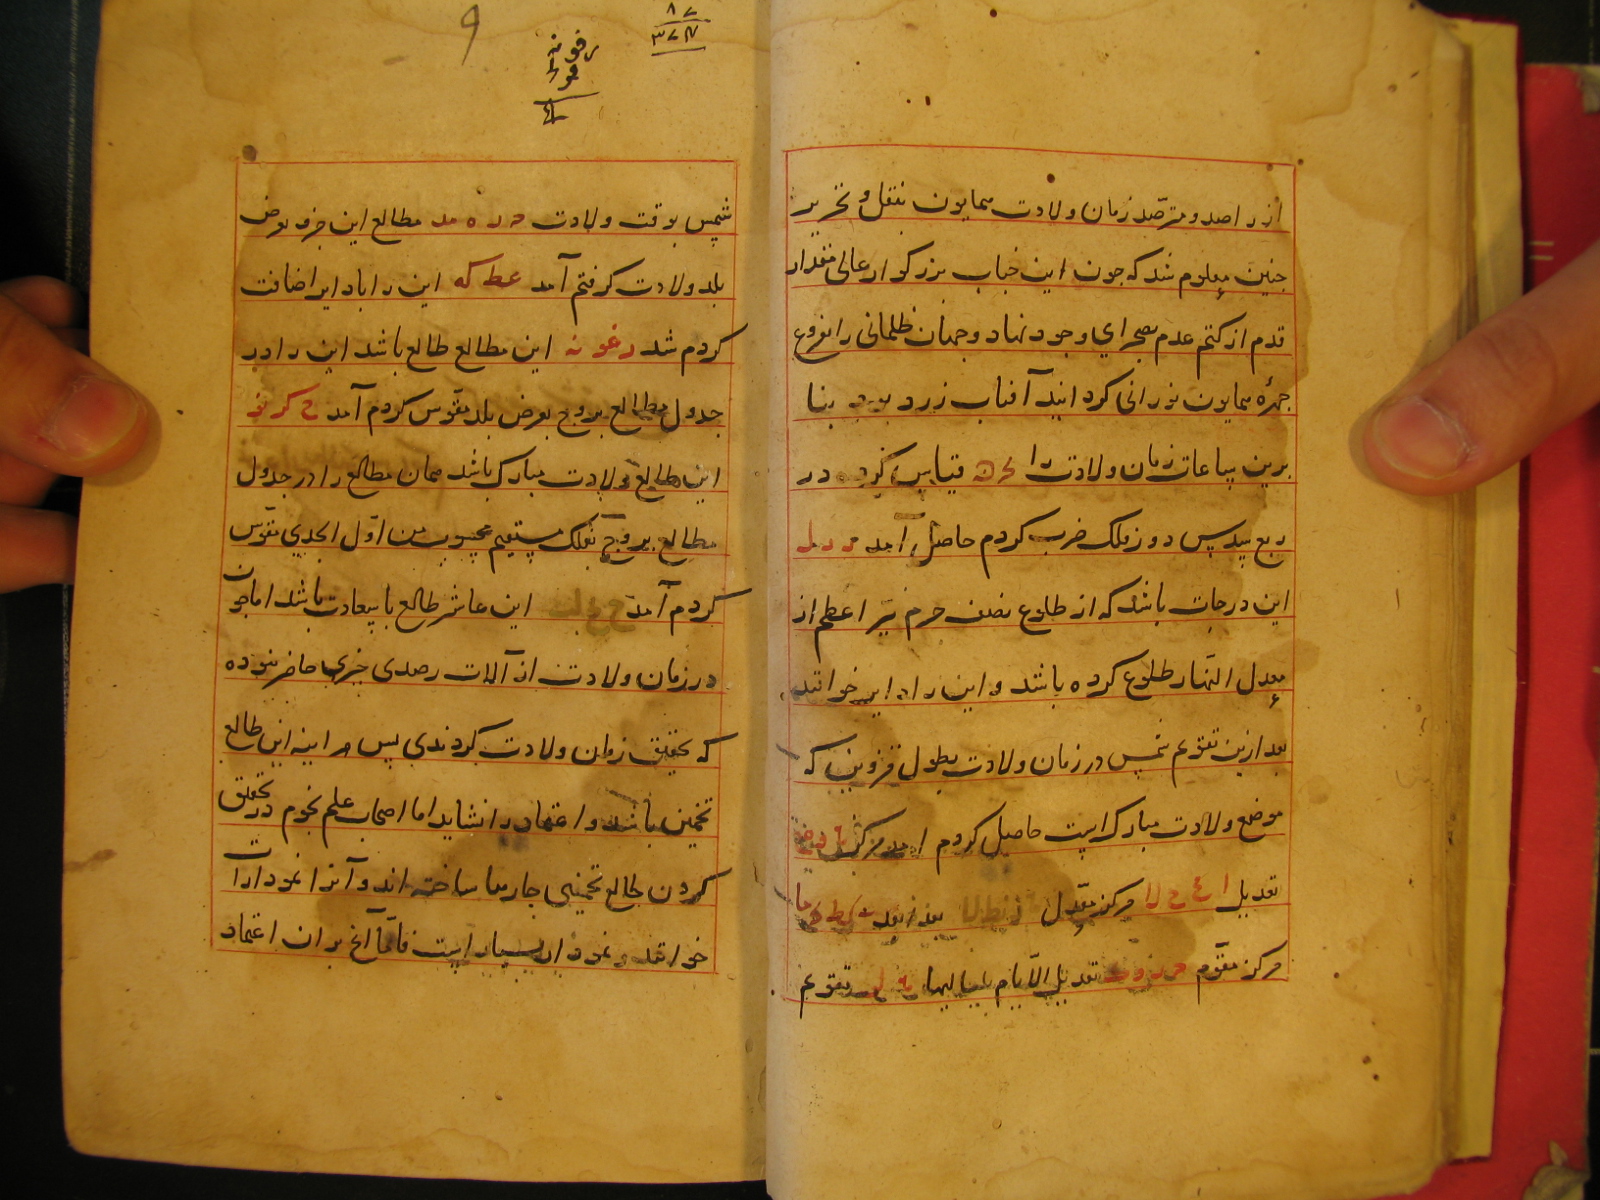 از راصد و مترصّد زمان ولادت همایون بنقل و تحریر
چنین معلوم شد که چون این جناب بزرکوار عالی مقدار
قدم از کتم عدم بصحرای وجود نهاد و جهان ظلمانی را بفروغ
چهرهٔ همایون نورانی کردانید آفتاب زرد بود بنا
برین ساعات زمان ولادت را قیاس کرده در
ربع سدس دور فلک ضرب کردم حاصل آمد
این درجات باشد که از طلوع نصف جرم نیّر اعظم از
معدل النهار طلوع کرده باشد و این را دایر خوانند
بعد ازین تقویم شمس در زمان ولادت بطول قزوین که
موضع ولادت مبارک است حاصل کردم آمد مرکز
تعدیل مرکز معدّل بعد ابعد
مرکز مقوّم تعدیل الایام بلیالیها تقویم
شمس بوقت ولادت مطالع این جزو بعرض
بلد ولادت کرفتم آمد عط که این را با دایر اضافت
کردم شد رغو نه این مطالع طالع باشد این را در
جدول مطالع بروج بعرض بلد مقوّس کردم آمد
این طالع ولادت مبارک باشد همان مطالع را در جدول
مطالع بروج بفلک مستقیم محسوب من اوّل الجدی مقوّس
کردم آمد این عاشر طالع با سعادت باشد اما چون
در زمان ولادت از آلات رصدی چیزی حاضر نبوده
که تحقیق زمان ولادت کردندی پس هر اینه این طالع
تخمین باشد و اعتماد را نشاید اما اصحاب علم نجوم در تحقیق
کردن طالع تخمینی چارها ساخته اند و آنرا نمودارات
خوانند و نمودار بسیار است فامّا آنچ بران اعتماد